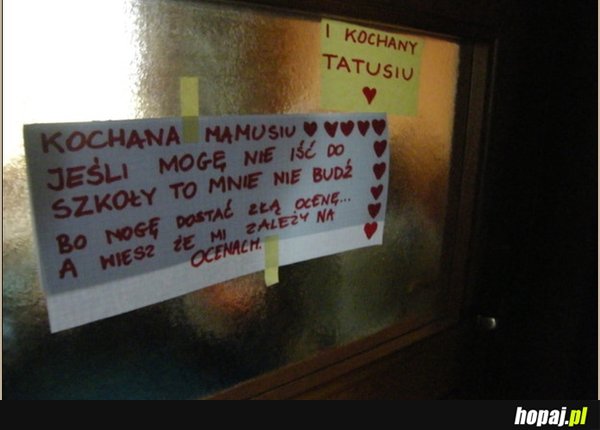 I KOCHANY
TATUSIU
♥
KOCHANA MAMUSIU ♥ ♥♥♥♥
JEŚLI MOGĘ NIE IŚĆ DO
SZKOŁY TO MNIE NIE BUDŹ
BO MOGĘ DOSTAĆ ZŁĄ OCENĘ...
A WIESZ ŻE MI ZALEŻY NA
OCENACH.
hopaj.pl